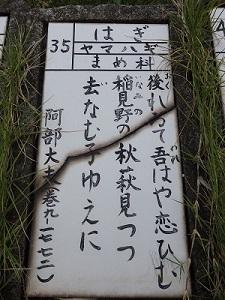 35
はぎ
ヤマハギ
まめ科
後れ居て吾はや恋ひむ
おく
われ
稲見野の秋萩見つつ
いなみの
去なむ子ゆえに
阿部大夫(巻九-一七七二)